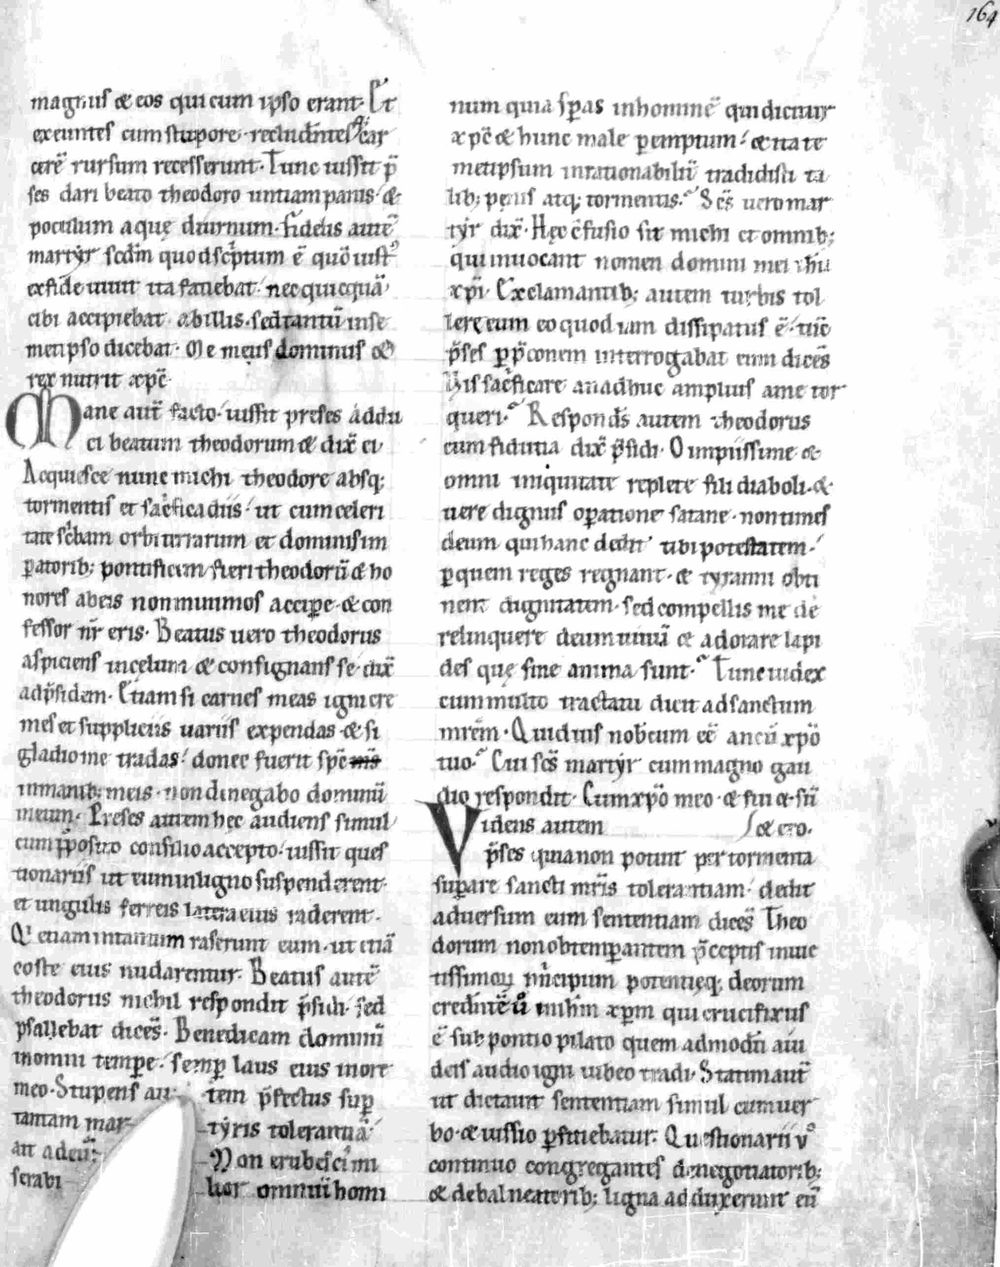 164
magnus & eos qui cum ipso erant. Et
exeuntes cum stupore. recludentes car
cerē rursum recesserunt. Tunc iussit p̄
ses dari beato theodoro untiam panis. &
poculum aquę diurnum. Fidelis autē
martyr scdm quod scptum ē quō iust᷒
ex fide uiuit ita faciebat. nec quicquā
cibi accipiebat ab illis. sed tantū in se
met ipso dicebat. Me meus dominus &
rex nutrit xp̄c.
Mane aut̄ facto. iussit preses addu
ci beatum theodorum & dix̄ ei
Acquiesce nunc michi theodore absq;
tormentis et sacfica diis. ut cum celeri
tate scbam orbi terrarum et dominis im
ꝑatorib; pontificem fieri theodorū & ho
nores ab eis non minimos accipe. & con
fessor nr̄ eris. Beatus uero theodorus
aspiciens in cęlum & consignans se. dix̄
ad p̄sidem. Etiam si carnes meas igni cre
mes et suppliciis uariis expendas. & si
gladio me tradas. donec fuerit sp̄c
in manib; meis. non dinegabo dominū
meum. Preses autem hęc audiens simul
cum p̄posito consilio accepto. iussit ques
tionariis ut eum in ligno suspenderent.
et ungulis ferreis latera eius raderent.
Qi etiam in tantum raserunt eum. ut etiā
coste eius nudarentur. Beatus autē
theodorus nichil respondit p̄sidi. sed
psallebat dicēs. Benedicam dominū
in omni tempe. semp̄ laus eius in ore
meo. Stupens au tem p̄fectus sup̄
tantam mar tyris tolerantiā
ait ad eū. Non erubescis mi
serabi lior omniū homi
num quia speras in hominē qui dicitur
xp̄c & hunc male ꝑemptum. & ita te
metipsum inrationabilit̄ tradidisti ta
lib; penis atq; tormentis. Scs̄ uero mar
tyr dix̄. Hęc ōfusio sit michi et omnib;
qui inuocant nomen domini mei ihu
xp̄i. Exclamantib; autem turbis tol
lere eum eo quod iam dissipatus ē. tūc
p̄ses ꝑ p̄conem interrogabat eum dicēs
Vis sacficare an adhuc amplius a me tor
queri. Respondēs autem theodorus
cum fiducia dix̄ p̄sidi. O impiissime &
omni iniquitate replete fili diaboli. &
uere dignus oꝑatione satane. non times
deum qui hanc dedit tibi potestatem.
ꝑ quem reges regnant. & tyranni obti
nent dignitatem. sed compellis me de
relinquere deum uiuū et adorare lapi
des quę sine anima sunt. Tunc iudex
cum multo tractatu dicit ad sanctum
mrēm. Quid uis nobcum eē an cū xp̄o
tuo. Cui scs̄ martyr cum magno gau
dio respondit. Cum xp̄o meo. & fui & sū
Videns autem & ero.
p̄ses quia non potuit per tormenta
suꝑare sancti mr̄is tolerantiam. dedit
aduersum eum sententiam dicēs. Theo
dorum non obtemꝑantem p̄ceptis inuic
tissimoꝝ p̄ncipum potentięq; deorum
p̄m qui crucifixus
ē sub pontio pilato quem admodū a iu
deis audio igni iubeo tradi. Statim aut̄
ut dictauit sententiam simul cum uer
bo. & iussio ꝑficiebatur. Questionarii v̊
continuo congregantes de negotiatorib;
& de balneatorib; ligna adduxerunt eū